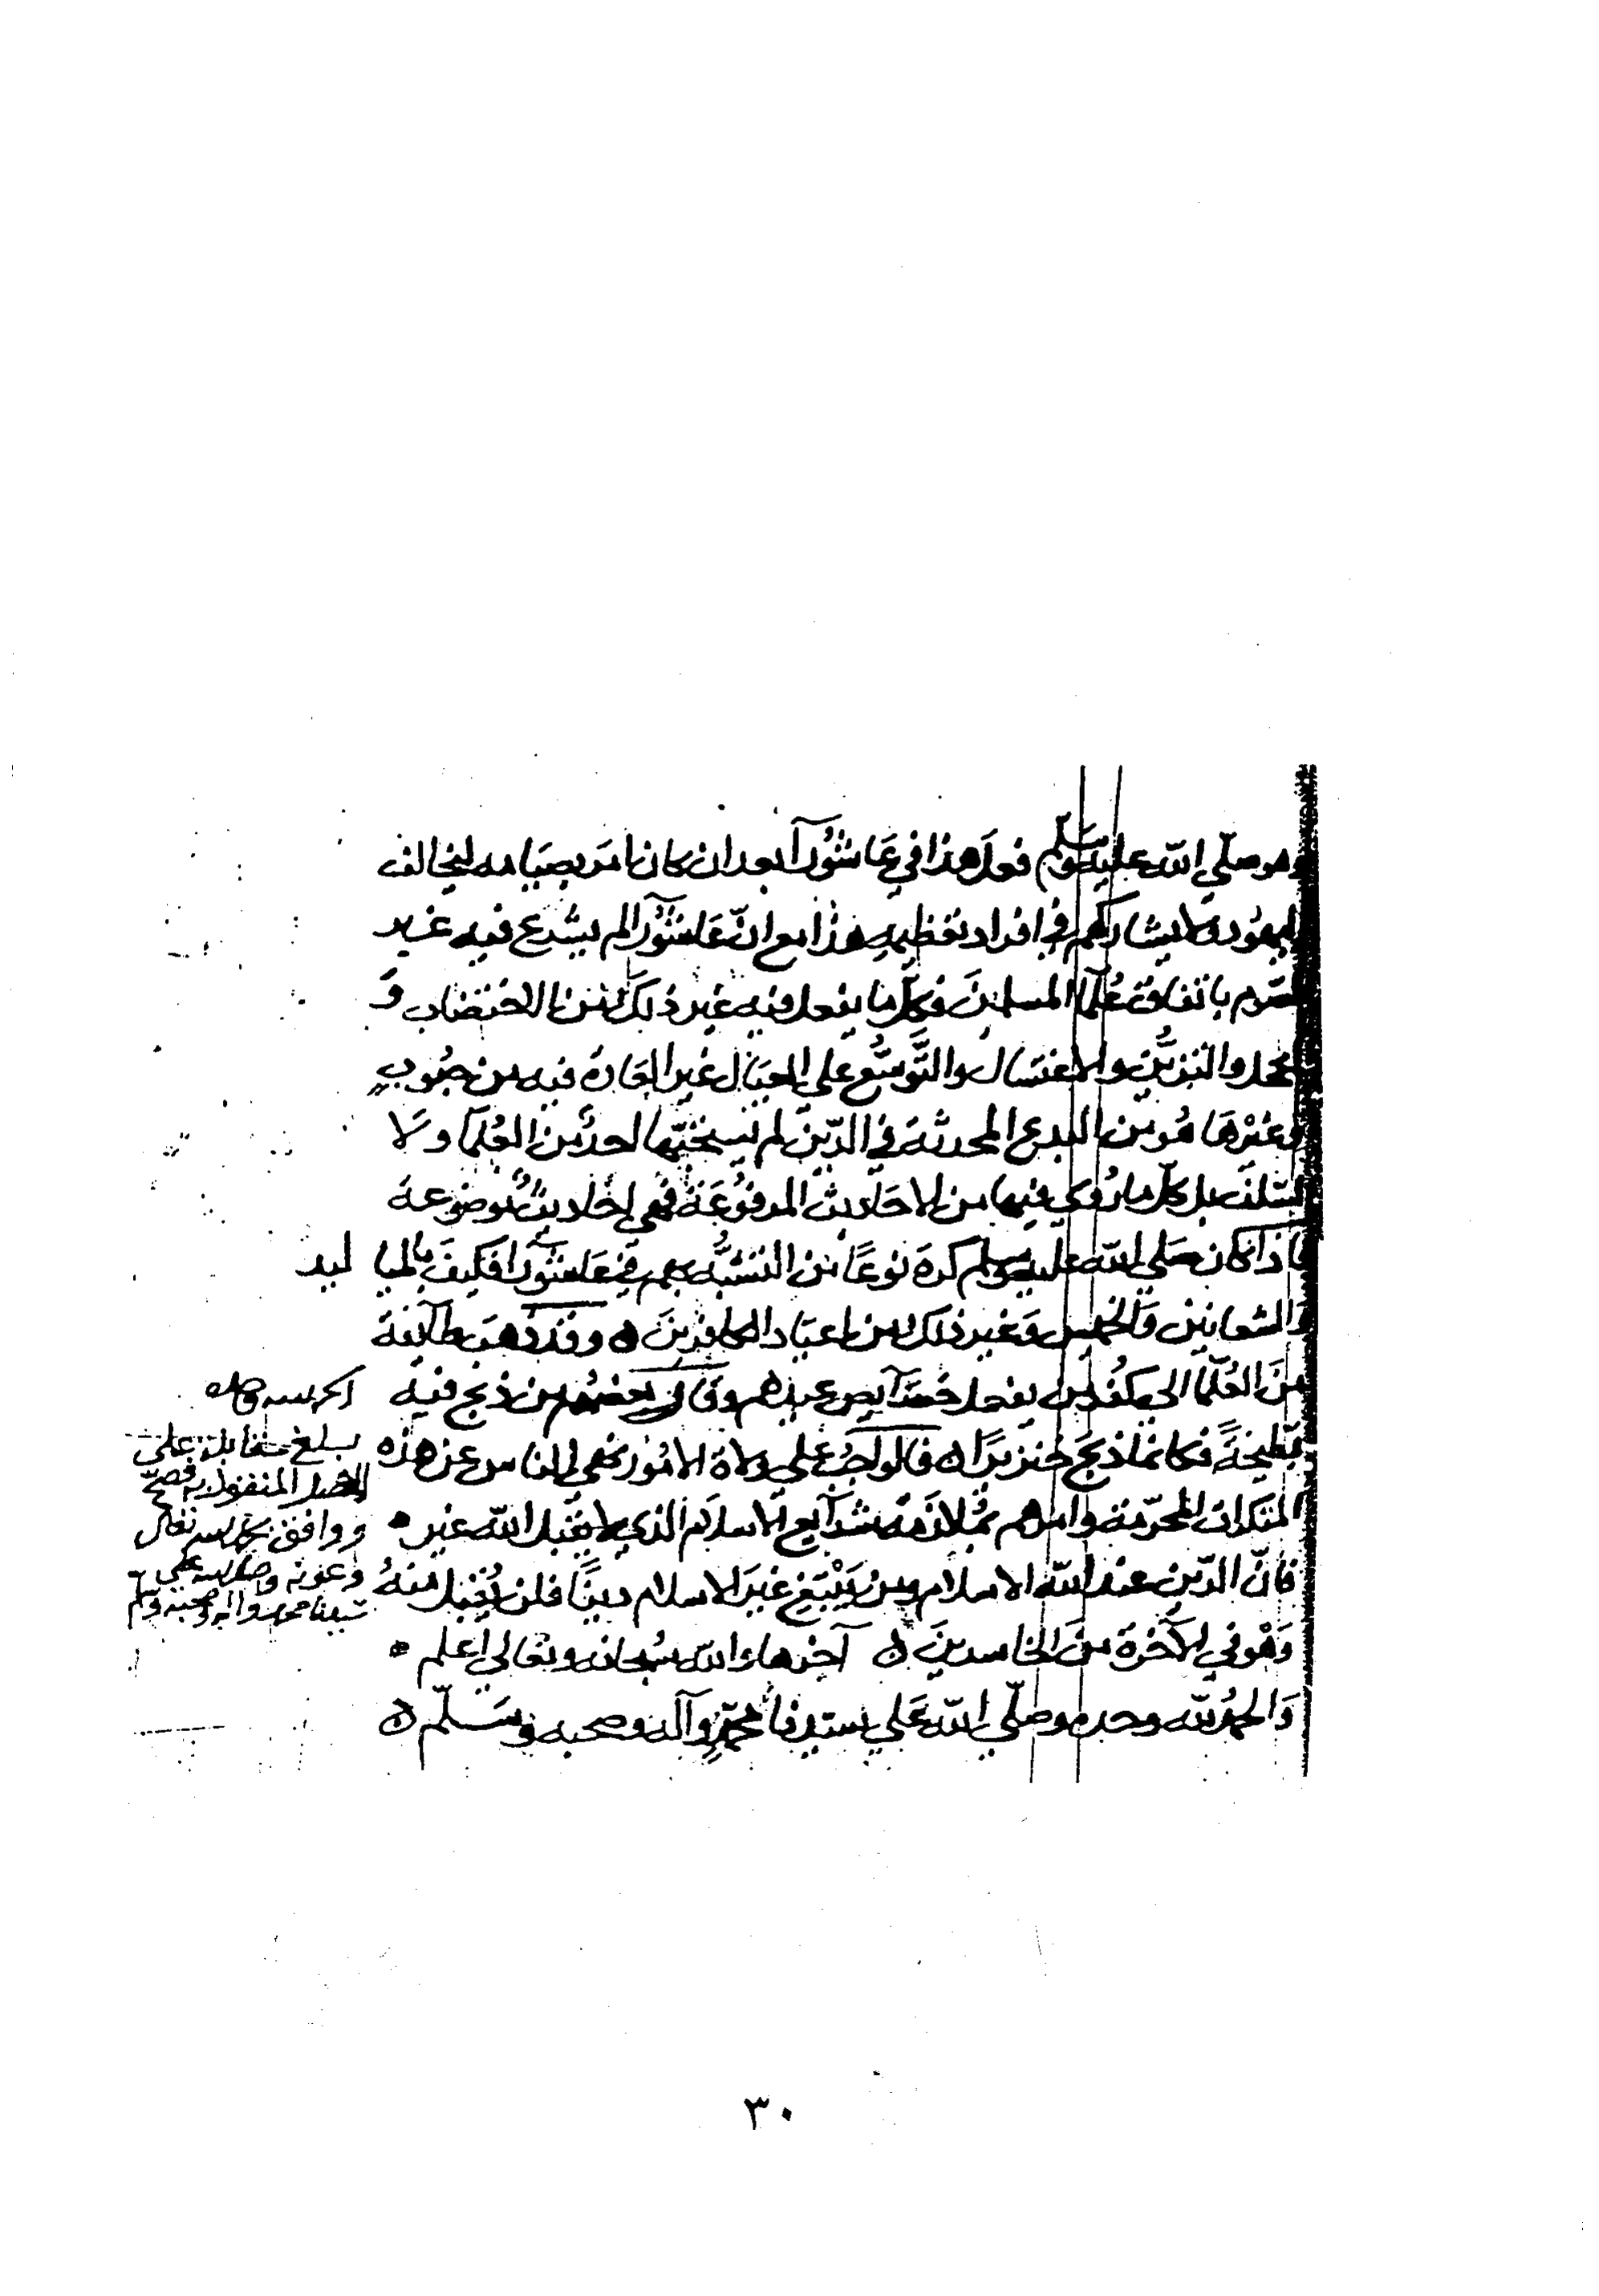 وهو صلي الله عليه وسلم فعل هذا في عَاشُورآ بعد ان كان امَر بصيَامه ليخالف
اليهُود ولا يشاركهم في افراد تعظيمه هذا مع انّ عَاشُورآ لم يشرع فيه غير
الصَّوم باتفاق عُلمآ المسلمينَ فكلّ ما يفعل فيه غير ذلك من الاختضاب وَ
الكحل والتزيُّن والاغتسال والتَّوسُّع علي العيَال غير العَادة فيه من حبُوبٍ
وغيْرهَا هُو من البدع المحدثة في الدّين لم يستحبّها احدٌ من العُلمآ ولَا
السّلف بل كلّ ما رُوي فيها من الاحَاديث المرفُوعَة فهي احَاديثٌ مُوضوعة
فاذا كان صلي الله عليه وسلم كرهَ نوعًا من التشبُّه بهم في عَاشُورا فكيفَ بالميا ليد
والشعانين وَالخميس وَغير ذلك من اعيَاد الكافرينَ ه وقد ذهبَ طآئفة
منَ العُلمآ الي كفُر من يفعل خصَآيص عيدهم وقال بعضُهم من ذبح فيه
بطّيخةً فكانما ذبحَ خنزيرًا ه فالواجبُ علي ولاة الامُور نهي الناس عن هذه
المنكرات المحرّمة وامرهم بمُلازمَة شرآيع الاسلام الذي لا يقبل الله غيره
فانّ الدّين عند الله الاسلام ومن يَبْتَغِ غيرَ الاسلام دينًا فلن يُقبل منهُ
وَهْو في الآخرة منَ الخاسرينَ ه آخرها والله سُبحانه وتعالي اعلم ه
وَالحمدُ لله وحده وصلّي الله عَلي سيدنا محمّدٍ وآله وصحبه وسَلّم ه
الحمد لله وحده
بلغ مقابلة علي
الاصل المنقول به فصحّ
ووافق بحمد الله تعالى
وعونه وصلى الله على
سيدنا محمد واله وصحبه وسلم
٣٠